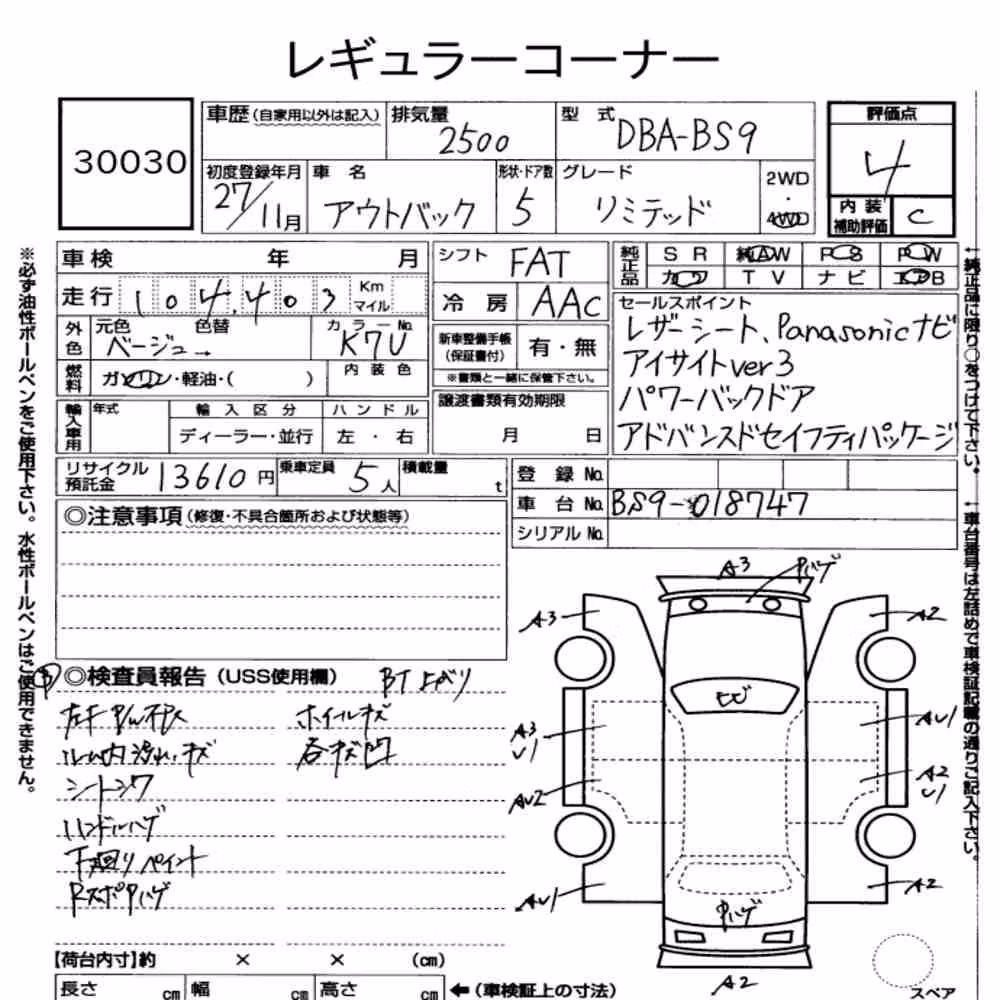 レギュラーコーナー
30030
車歴 (自家用以外は記入)
排気量
2500
型 式
DBA-BS9
評価点
4
初度登録年月
27/11月
車 名
アウトバック
形状・ドア数
5
グレード
リミテッド
2WD
・
4WD
内 装
補助評価
C
車検 年 月
シフト
FAT
純正品
SR
純AW
PS
PW
カワ
TV
ナビ
エアB
走行
104,403
Km
マイル
冷 房
AAC
セールスポイント
レザーシート、Panasonicナビ
アイサイトver3
パワーバックドア
アドバンスドセイフティパッケージ
外色
元色 色替
ベージュ→
カラーNo.
K7U
新車整備手帳
(保証書付)
有・無
※書類と一緒に保管下さい。
燃料
ガソリン・軽油・( )
内装色
輸入車用
年式
輸入区分
ディーラー・並行
ハンドル
左・右
譲渡書類有効期限
月 日
リサイクル
預託金
13610円
乗車定員
5人
積載量
t
登 録 No.
車 台 No.
BS9-018747
シリアル No.
◎注意事項(修復・不具合箇所および状態等)
◎検査員報告(USS使用欄)
ルーム内汚れ、キズ
シートシワ
ハンドルハゲ
下廻りペイント
RスポPハゲ
ホイールキズ
各キズ凹
A3
Pハゲ
A3
A2
モビ
A3
U1
AU1
AU2
A2
U1
AU1
A2
Pハゲ
A2
【荷台内寸】約 × × (cm)
長さ cm
幅 cm
高さ cm
←(車検証上の寸法)
スペア
※必ず油性ボールペンをご使用下さい。水性ボールペンはご使用できません。
←純正品に限り○をつけて下さい。
←車台番号は左詰めで車検証記載の通りご記入下さい。